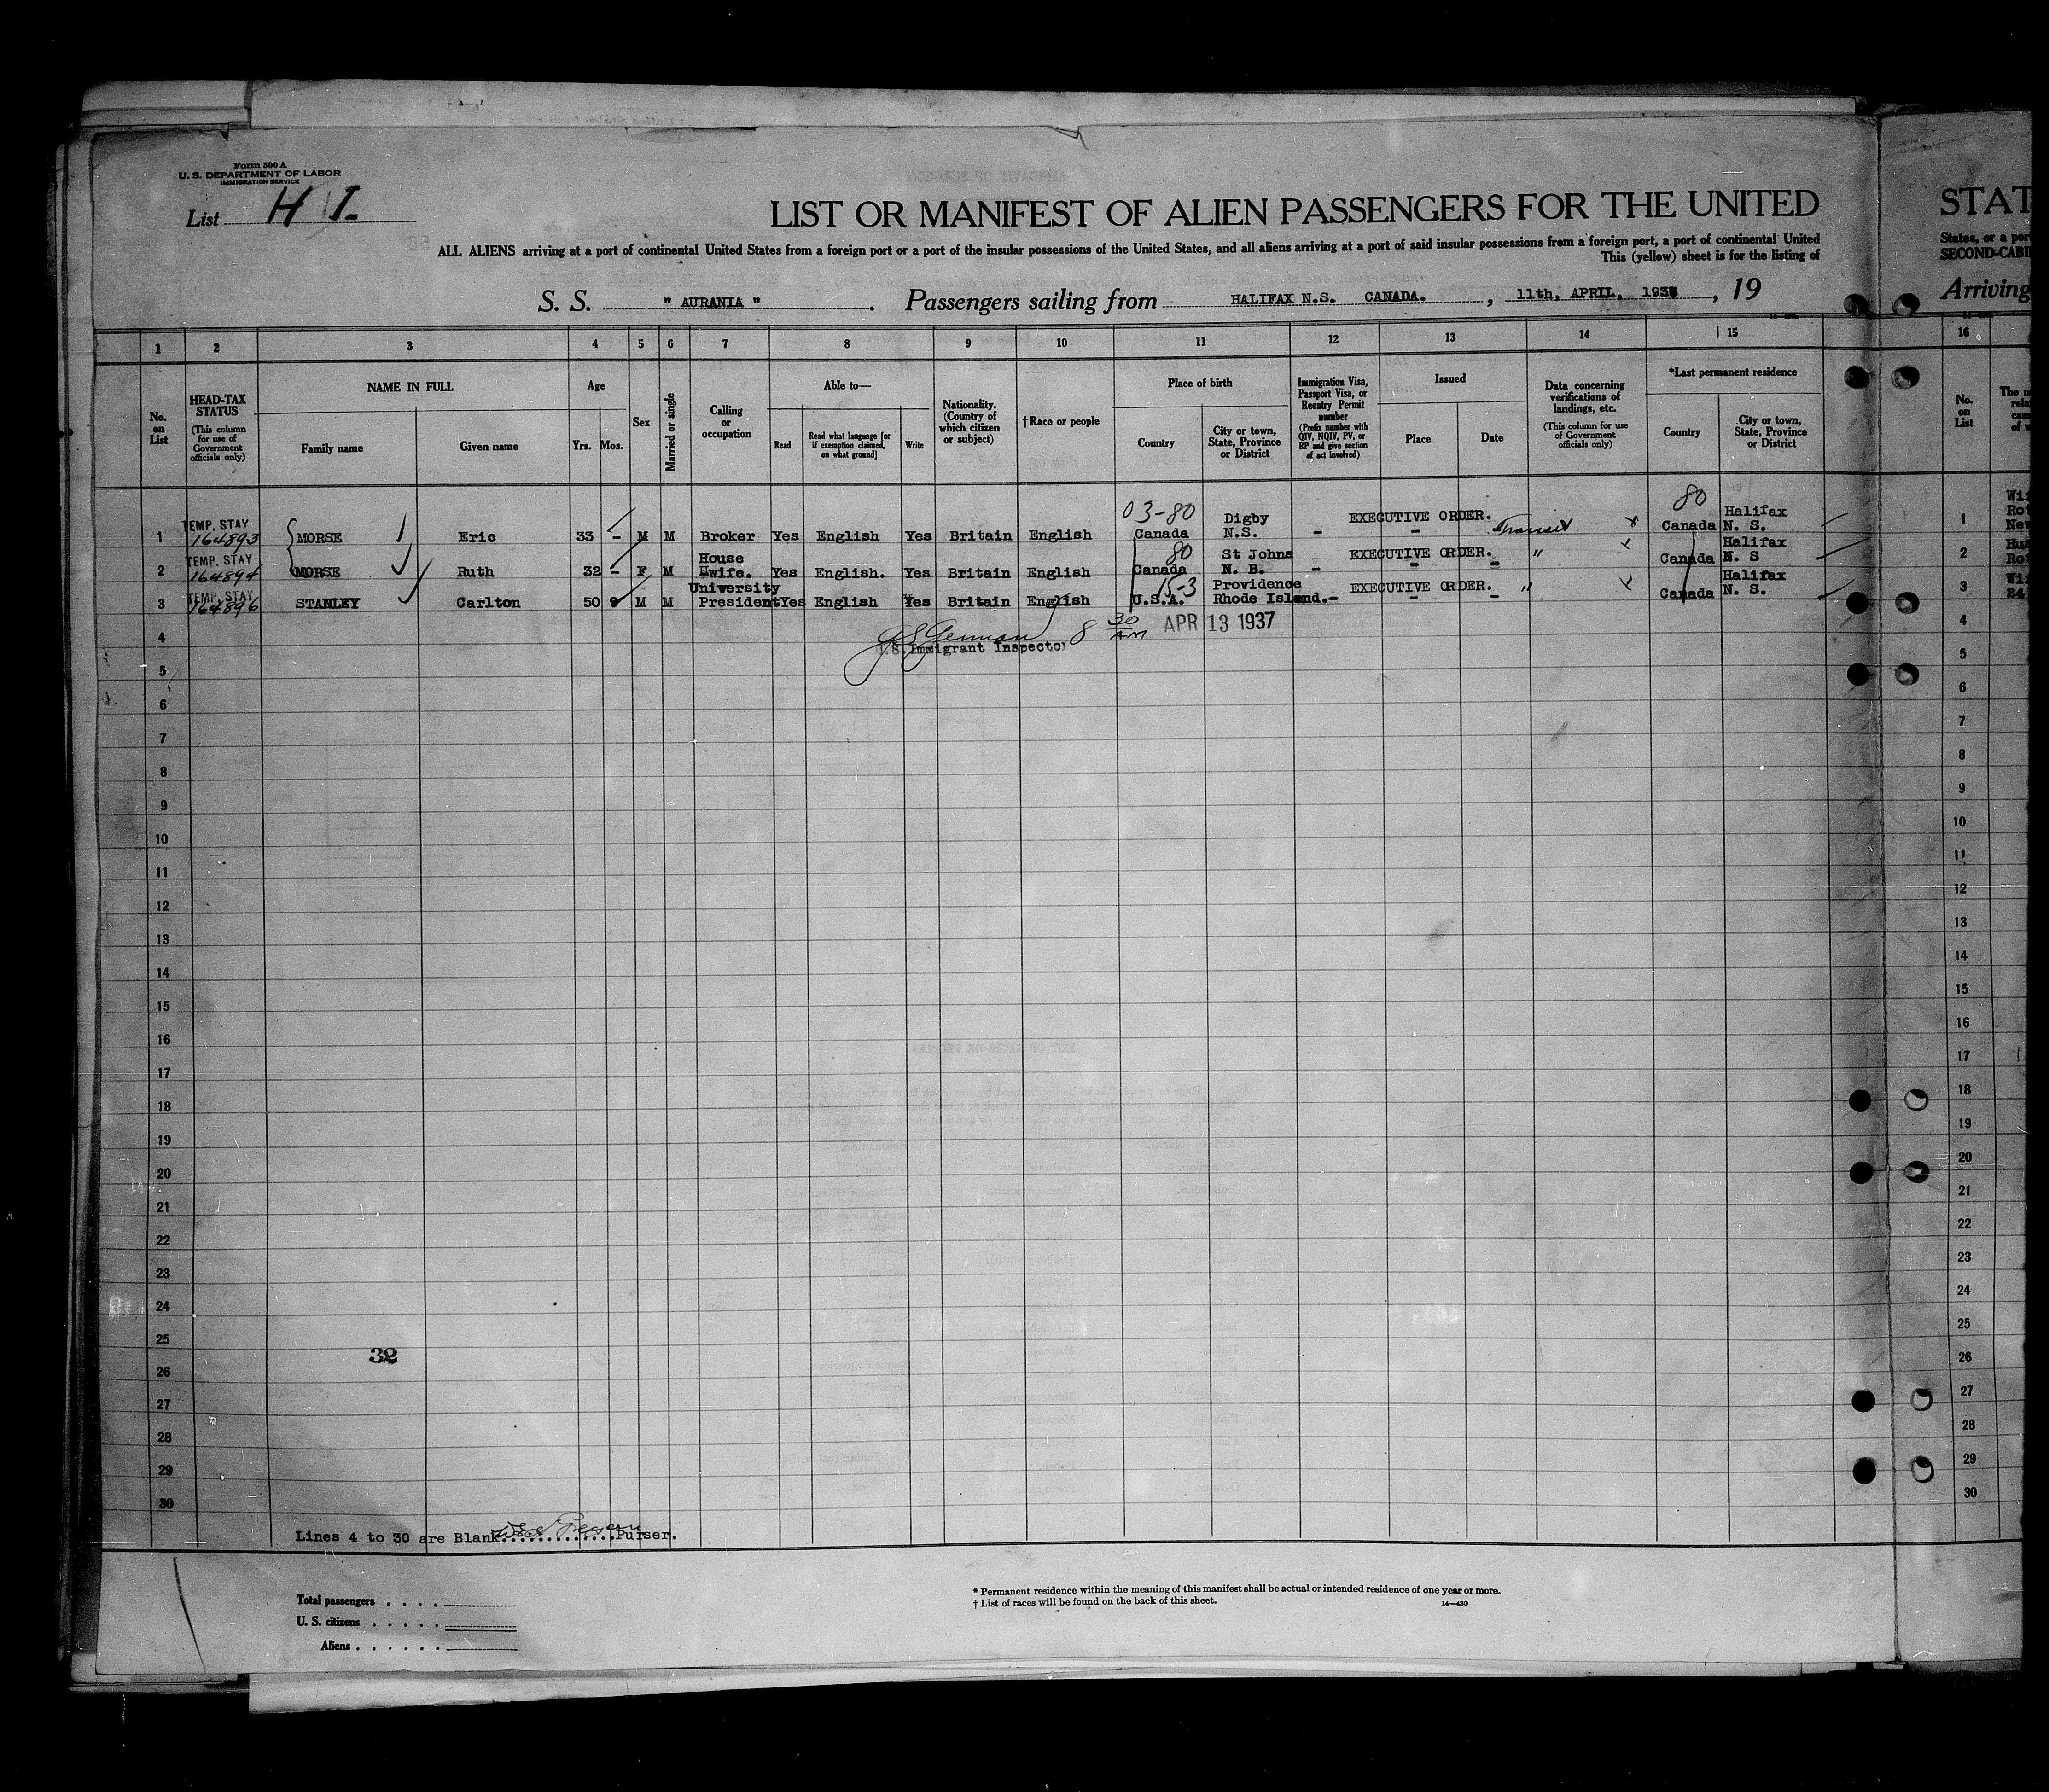 Form 500 A
U. S. DEPARTMENT OF LABOR
IMMIGRATION SERVICE
List H I
LIST OR MANIFEST OF ALIEN PASSENGERS FOR THE UNITED
STAT
ALL ALIENS arriving at a port of continental United States from a foreign port or a port of the insular possessions of the United States, and all aliens arriving at a port of said insular possessions from a foreign port, a port of continental United
States, or a por
This (yellow) sheet is for the listing of
SECOND-CABI
S. S. " AURANIA " . Passengers sailing from HALIFAX N.S. CANADA. , 11th, APRIL, 1937 , 19
Arriving
1 2 3 4 5 6 7 8 9 10 11 12 13 14 15 16
No. on List
HEAD-TAX STATUS
(This column for use of Government officials only)
NAME IN FULL
Family name
Given name
Age
Yrs. Mos.
Sex
Married or single
Calling or occupation
Able to—
Read
Read what language [or if exemption claimed, on what ground]
Write
Nationality. (Country of which citizen or subject)
†Race or people
Place of birth
Country
City or town, State, Province or District
Immigration Visa, Passport Visa, or Reentry Permit number
(Prefix number with QIV, NQIV, PV, or RP and give section of act involved)
Issued
Place
Date
Data concerning verifications of landings, etc.
(This column for use of Government officials only)
*Last permanent residence
Country
City or town, State, Province or District
No. on List
1 TEMP. STAY 164893 MORSE Eric 33 - M M Broker Yes English Yes Britain English 03-80 Canada Digby N.S. - EXECUTIVE ORDER. - Transit x 80 Canada Halifax N. S. 1
2 TEMP. STAY 164894 MORSE Ruth 32 - F M House Wwife. Yes English. Yes Britain English 80 Canada St Johns N. B. - EXECUTIVE ORDER. - - " x Canada Halifax N. S 2
3 TEMP. STAY 164896 STANLEY Carlton 50 9 M M University President Yes English Yes Britain English 15-3 U.S.A. Providence Rhode Island. - EXECUTIVE ORDER. - - " x Canada Halifax N. S. 3
24
4 8 30 AM APR 13 1937 4
U.S. Immigrant Inspector
5 5
6 6
7 7
8 8
9 9
10 10
11 11
12 12
13 13
14 14
15 15
16 16
17 17
18 18
19 19
20 20
21 21
22 22
23 23
24 24
25 25
32
26 26
27 27
28 28
29 29
30 30
Lines 4 to 30 are Blank..............Purser.
Total passengers . . . .
U. S. citizens . . . . .
Aliens . . . . . .
* Permanent residence within the meaning of this manifest shall be actual or intended residence of one year or more.
† List of races will be found on the back of this sheet.
14—430